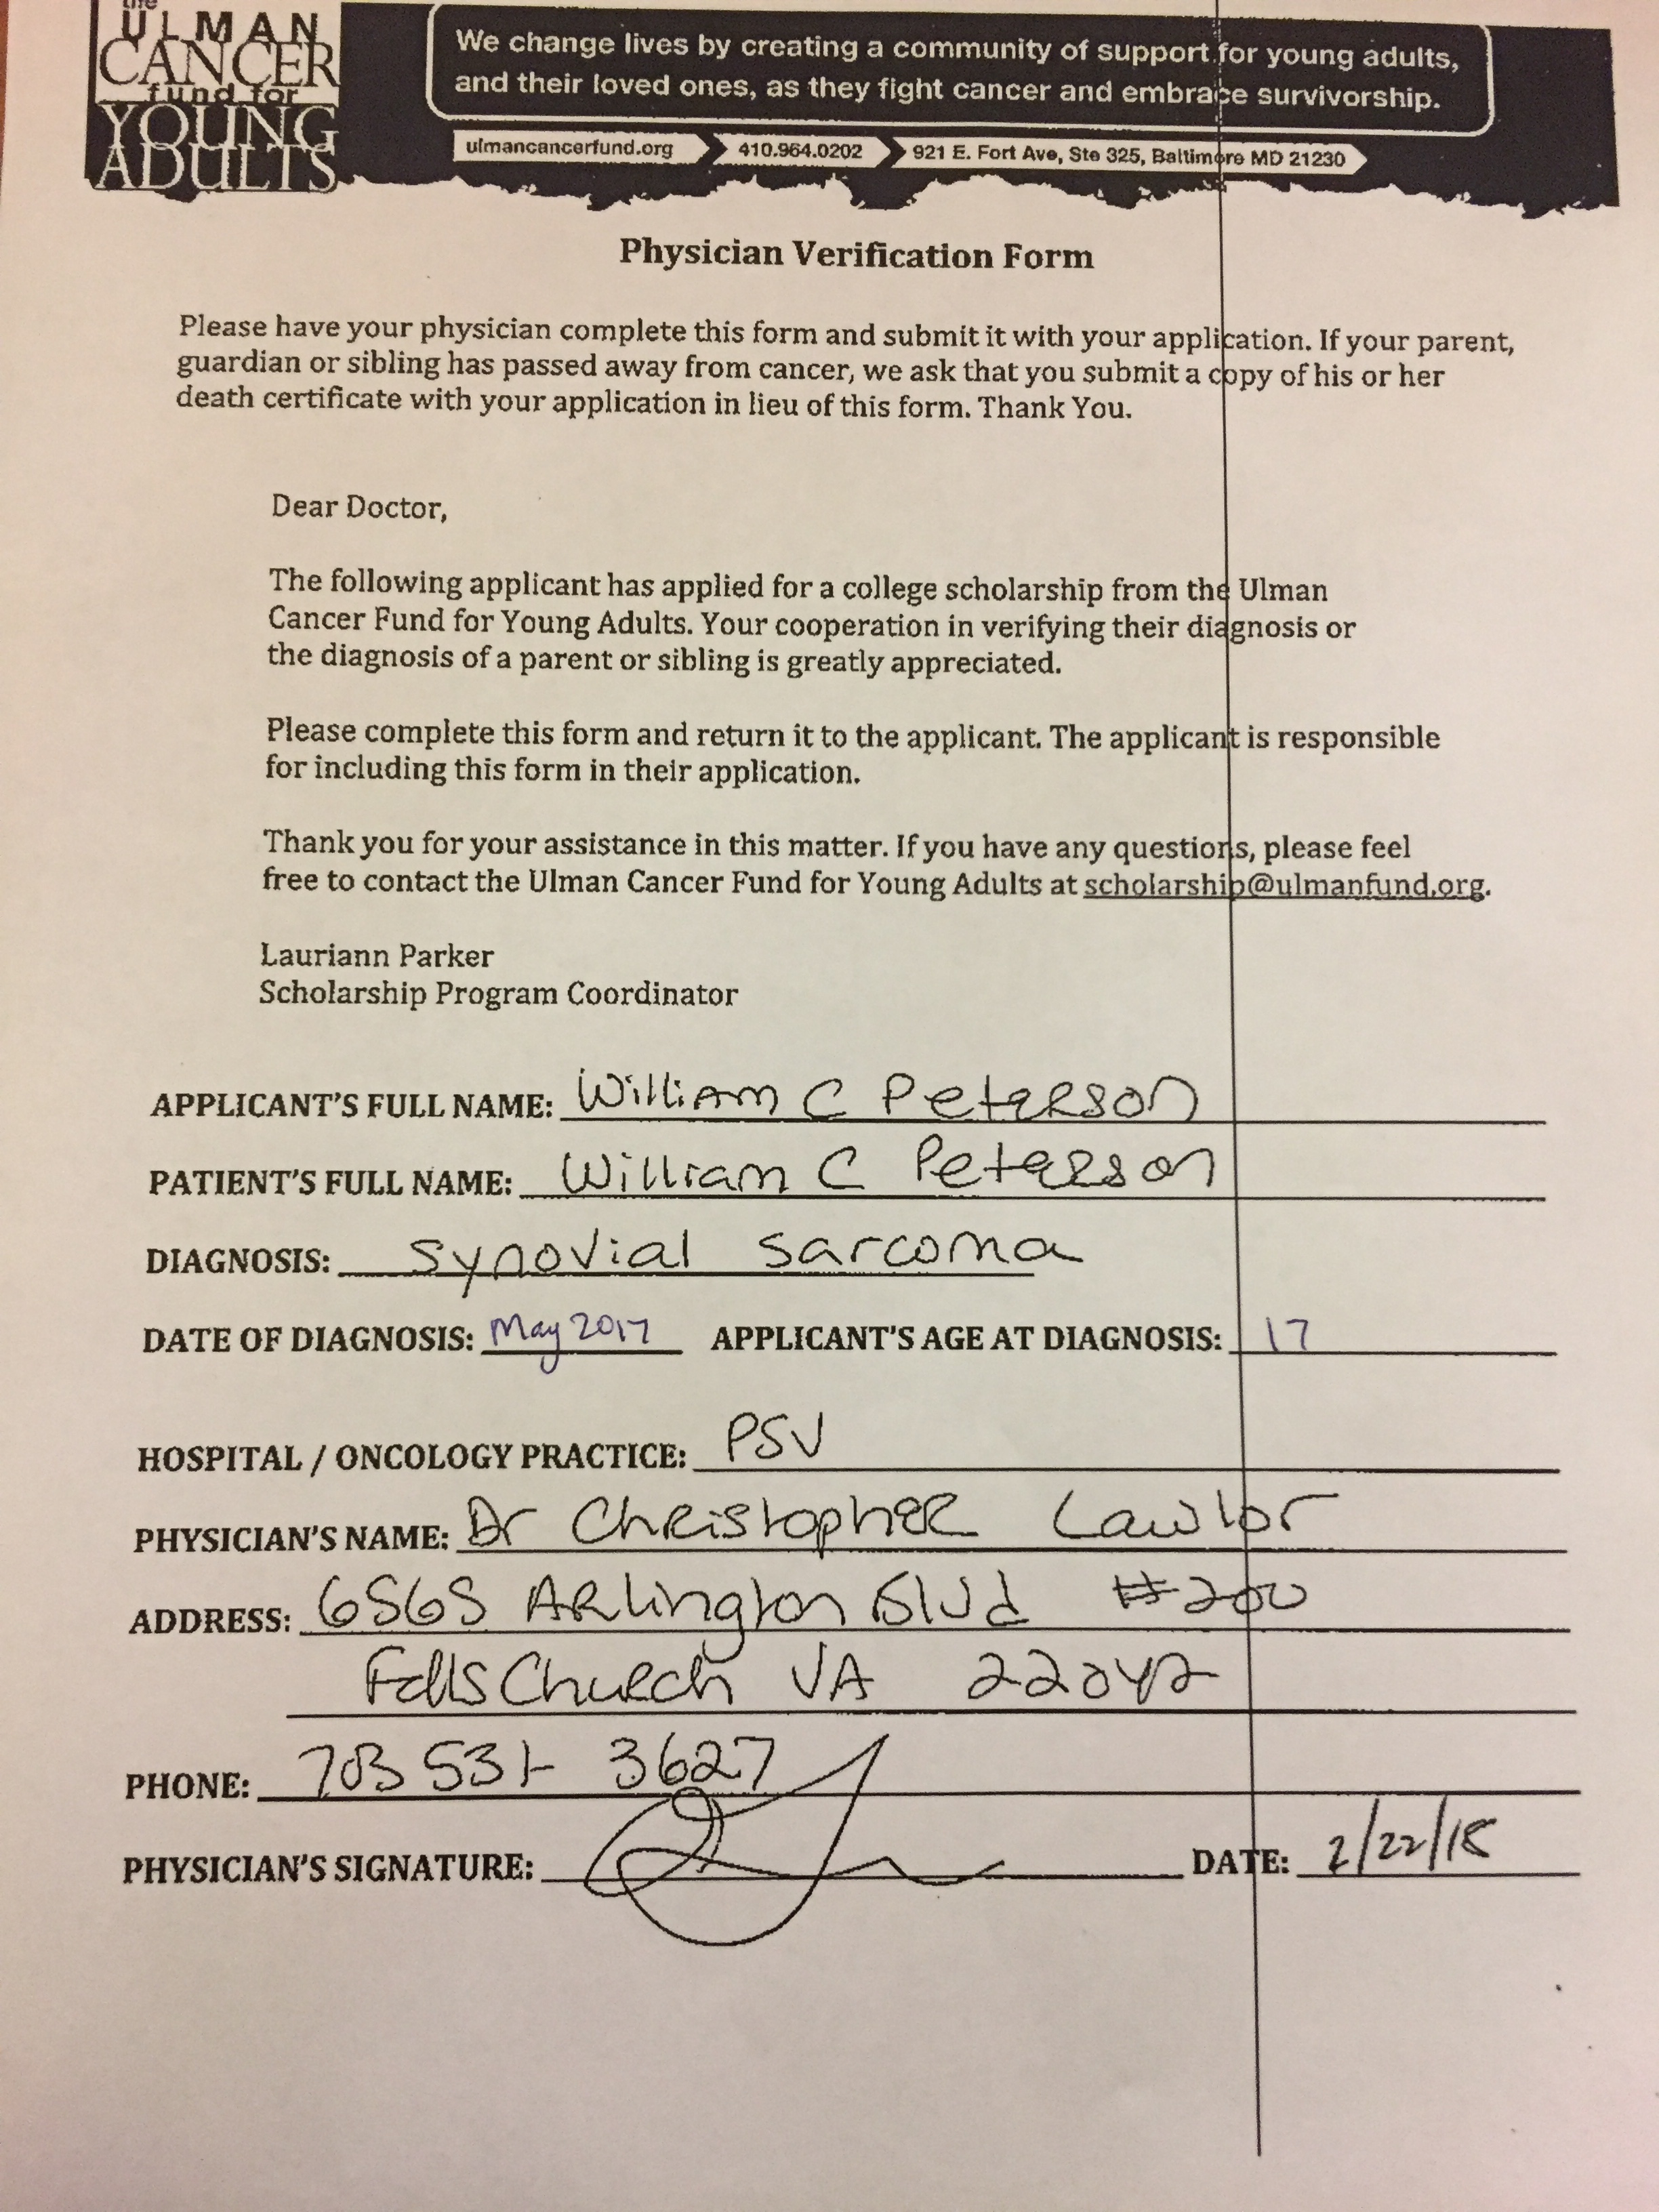 the
ULMAN
CANCER
fund for
YOUNG
ADULTS
We change lives by creating a community of support for young adults,
and their loved ones, as they fight cancer and embrace survivorship.
ulmancancerfund.org 410.964.0202 921 E. Fort Ave, Ste 325, Baltimore MD 21230
Physician Verification Form
Please have your physician complete this form and submit it with your application. If your parent,
guardian or sibling has passed away from cancer, we ask that you submit a copy of his or her
death certificate with your application in lieu of this form. Thank You.
Dear Doctor,
The following applicant has applied for a college scholarship from the Ulman
Cancer Fund for Young Adults. Your cooperation in verifying their diagnosis or
the diagnosis of a parent or sibling is greatly appreciated.
Please complete this form and return it to the applicant. The applicant is responsible
for including this form in their application.
Thank you for your assistance in this matter. If you have any questions, please feel
free to contact the Ulman Cancer Fund for Young Adults at scholarship@ulmanfund.org.
Lauriann Parker
Scholarship Program Coordinator
APPLICANT'S FULL NAME: William C Peterson
PATIENT'S FULL NAME: William C Peterson
DIAGNOSIS: synovial sarcoma
DATE OF DIAGNOSIS: May 2017 APPLICANT'S AGE AT DIAGNOSIS: 17
HOSPITAL / ONCOLOGY PRACTICE: PSV
PHYSICIAN'S NAME: Dr Christopher Lawlor
ADDRESS: 6565 Arlington Blvd #200
Falls Church VA 22042
PHONE: 703 531- 3627
PHYSICIAN'S SIGNATURE: DATE: 2/22/18